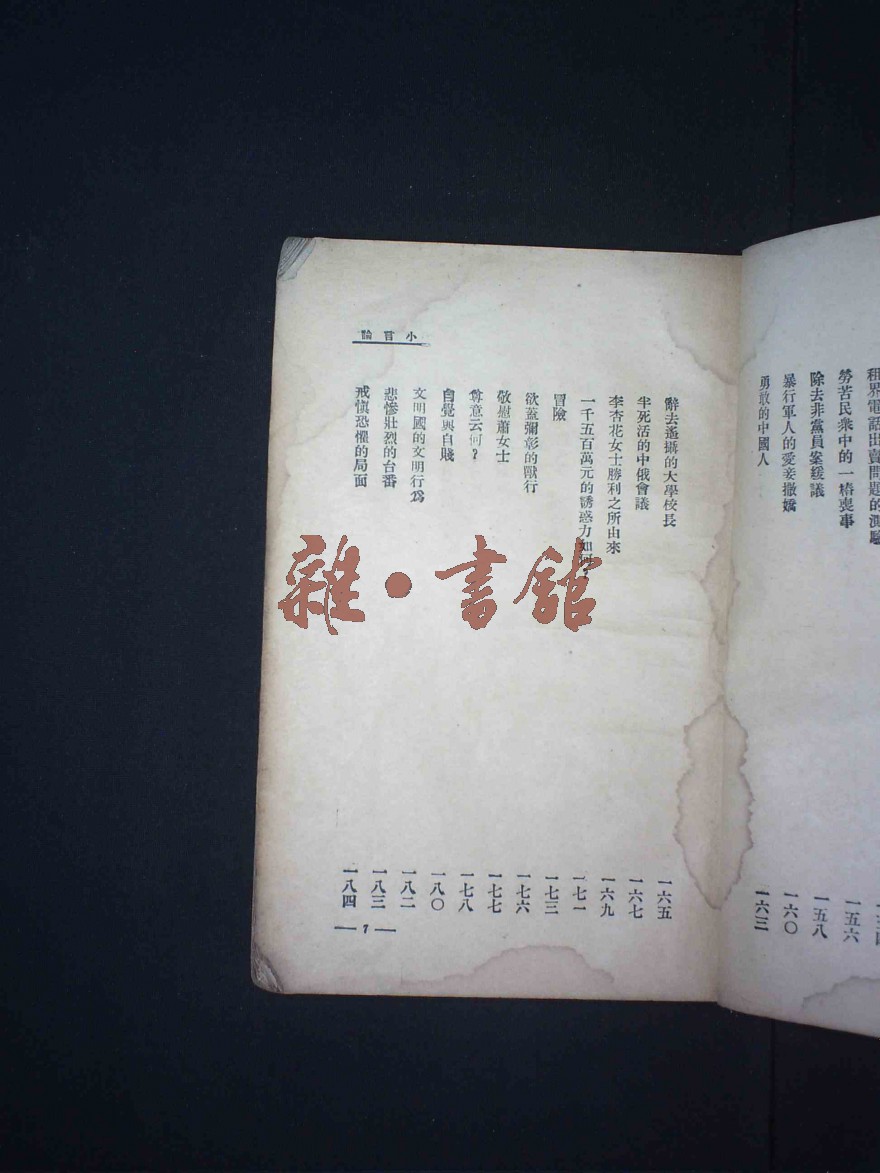 租界電話出賣問題的測驗
勞苦民衆中的一樁喪事 一五六
除去非黨員案緩議 一五八
暴行軍人的愛妾撒嬌 一六〇
勇敢的中國人 一六三
小言論
辭去遙攝的大學校長 一六五
半死活的中俄會議 一六七
李杏花女士勝利之所由來 一六九
一千五百萬元的誘惑力如何？ 一七一
冒險 一七三
欲蓋彌彰的獸行 一七六
敬慰蕭女士 一七七
尊意云何？ 一七八
自覺與自賤 一八〇
文明國的文明行爲 一八二
悲慘壯烈的台番 一八三
戒愼恐懼的局面 一八四
— 7 —
雜·書舘